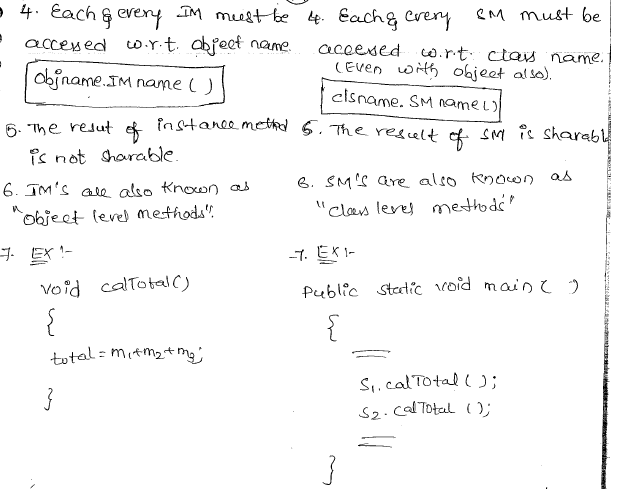 4. Each & every IM must be
accessed w.r.t. object name.
objname.IM name ( )
5. The resut of instance method
is not sharable.
6. IM's are also known as
"object level methods".
7. EX :-
void calTotal()
{
total = m1+m2+m3;
}
4. Each & every SM must be
accessed w.r.t. class name.
(Even with object also).
clsname. SM name()
5. The result of SM is sharabl
6. SM's are also known as
"class level methods"
7. EX :-
public static void main ( )
{
S1. calTotal ( );
S2. calTotal ( );
}